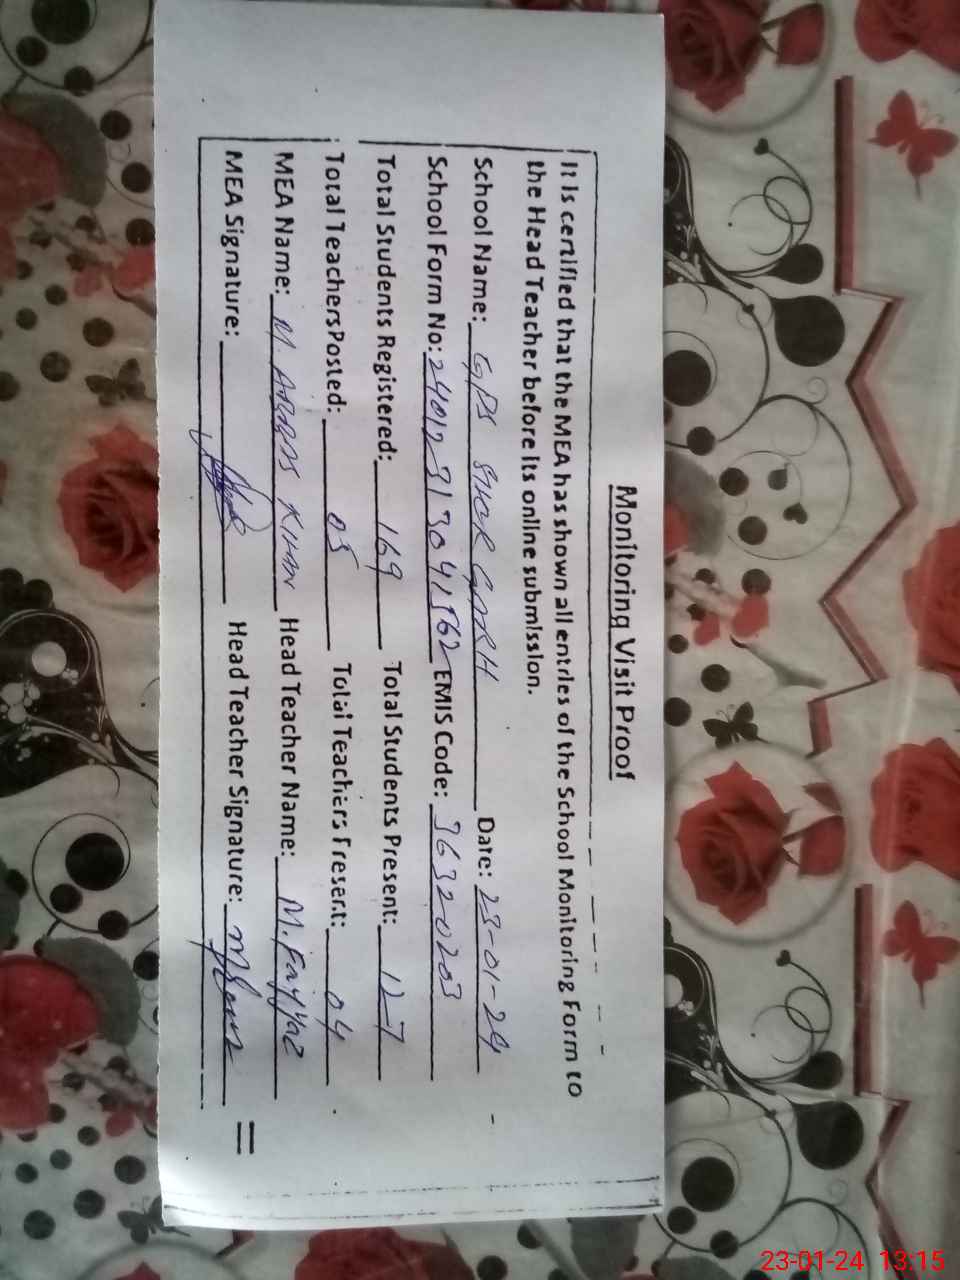 Monitoring Visit Proof
It is certified that the MEA has shown all entries of the School Monitoring Form to
the Head Teacher before its online submission.
School Name: GPS SHER GARH Date: 23-01-24
School Form No: 24012313041562 EMIS Code: 36320203
Total Students Registered: 169 Total Students Present: 127
Total Teachers Posted: 05 Total Teachers Present: 04
MEA Name: M. ABBAS KHAN Head Teacher Name: M. Fayyaz
MEA Signature: Head Teacher Signature:
23-01-24 13:15